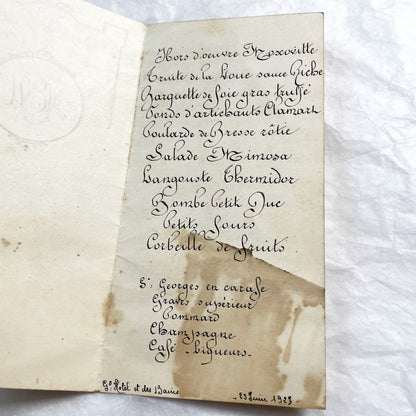 Hors d'oeuvre Moscovitte
Truite de la Loue sauce Riche
Barquette de foie gras truffé
Fonds d'artichauts Clamart
Poularde de Bresse rôtie
Salade Mimosa
Langouste Thermidor
Bombe Petit Duc
Petits fours
Corbeille de fruits
St Georges en carafe
Graves supérieur
Pommard
Champagne
Café - Liqueurs -
Gd Hotel et des Bains
- 23 Juin